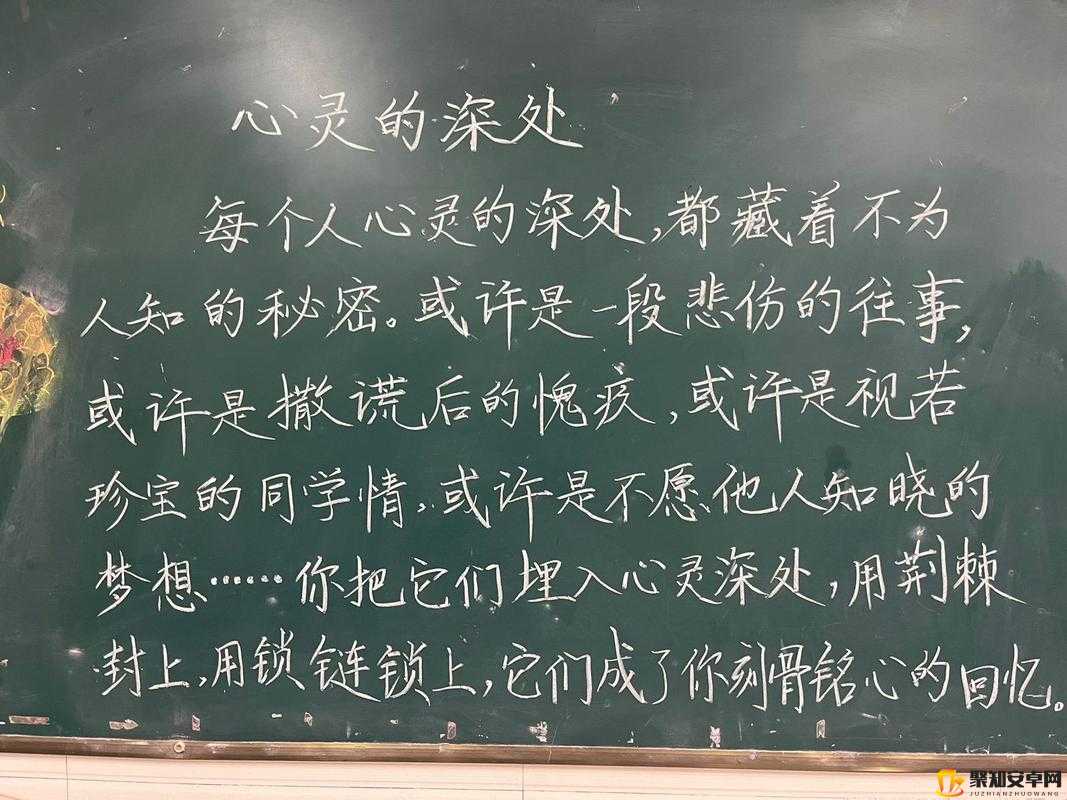 心灵的深处
每个人心灵的深处,都藏着不为
人知的秘密。或许是一段悲伤的往事,
或许是撒谎后的愧疚,或许是视若
珍宝的同学情,或许是不愿他人知晓的
梦想……你把它们埋入心灵深处,用荆棘
封上,用锁链锁上,它们成了你刻骨铭心的回忆。
聚知安卓网
JUZHIANZHUOWANG